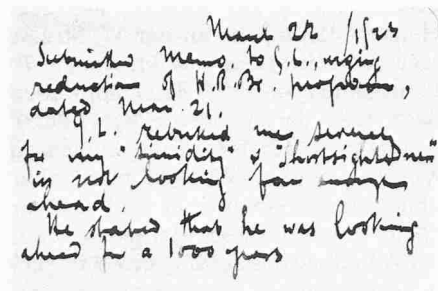 March 22 / 1923
Submitted Memo. to G.L., urging
reduction of H.R.Br. proposal,
dated Mar. 21.
G L. rebuked me severely
for my "timidity" & "shortsightedness"
in not looking far enough
ahead.
He stated that he was looking
ahead for a 1000 years